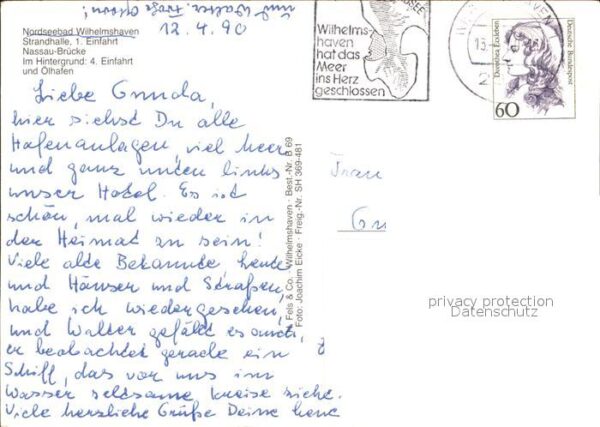 und Walter. Frohe Ostern!
12.4.90
Nordseebad Wilhelmshaven
Strandhalle, 1. Einfahrt
Nassau-Brücke
Im Hintergrund: 4. Einfahrt
und Ölhafen
Liebe Gunda,
hier siehst Du alle
Hafenanlagen, viel Meer
und ganz unten links
unser Hotel. Es ist
schön, mal wieder in
der Heimat zu sein!
Viele alte Bekannte, heute
und Häuser und Straßen,
habe ich wiedergesehen,
und Walter gefällt es auch,
er beobachtet gerade ein
Schiff, das vor uns im
Wasser seltsame Kreise zieht.
Viele herzliche Grüße Deine
Fels & Co. · Wilhelmshaven · Best.-Nr. B 69
Foto: Joachim Eicke · Freig.-Nr. SH 369-481
Wilhelms-
haven
hat das
Meer
ins Herz
geschlossen
Dorothea Erxleben
Deutsche Bundespost
60
Frau
Gu
privacy protection
Datenschutz